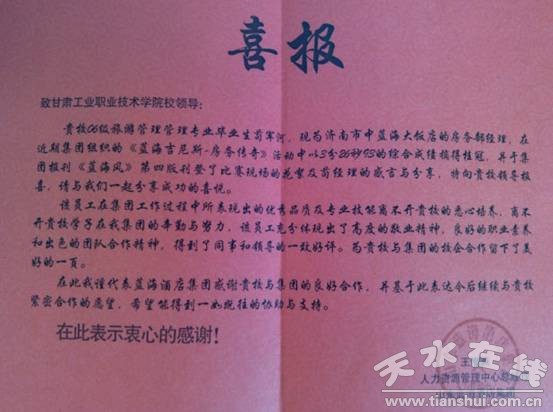 喜报
致甘肃工业职业技术学院校领导:
贵校06级旅游管理管理专业毕业生苟军河,现为济南市中蓝海大饭店的房务部经理,在
近期集团组织的《蓝海吉尼斯-房务传奇》活动中以3分26秒93的综合成绩摘得桂冠,并于集
团报刊《蓝海风》第四版刊登了比赛现场的花絮及苟经理的感言与分享,特向贵校领导报
喜,请与我们一起分享成功的喜悦。
该员工在集团工作过程中所表现出的优秀品质及专业技能离不开贵校的悉心培养,离不
开贵校学子在我集团的辛勤与努力,该员工充分体现出了高度的敬业精神,良好的职业素养
和出色的团队合作精神,得到了同事和领导的一致好评。为贵校与集团的校企合作留下了美
好的一页。
在此我谨代表蓝海酒店集团感谢贵校与集团的良好合作,并基于此表达今后继续与贵校
紧密合作的愿望,希望能得到一如既往的协助与支持。
在此表示衷心的感谢!
王
人力资源管理中心总经理
天水在线
www.tianshui.com.cn